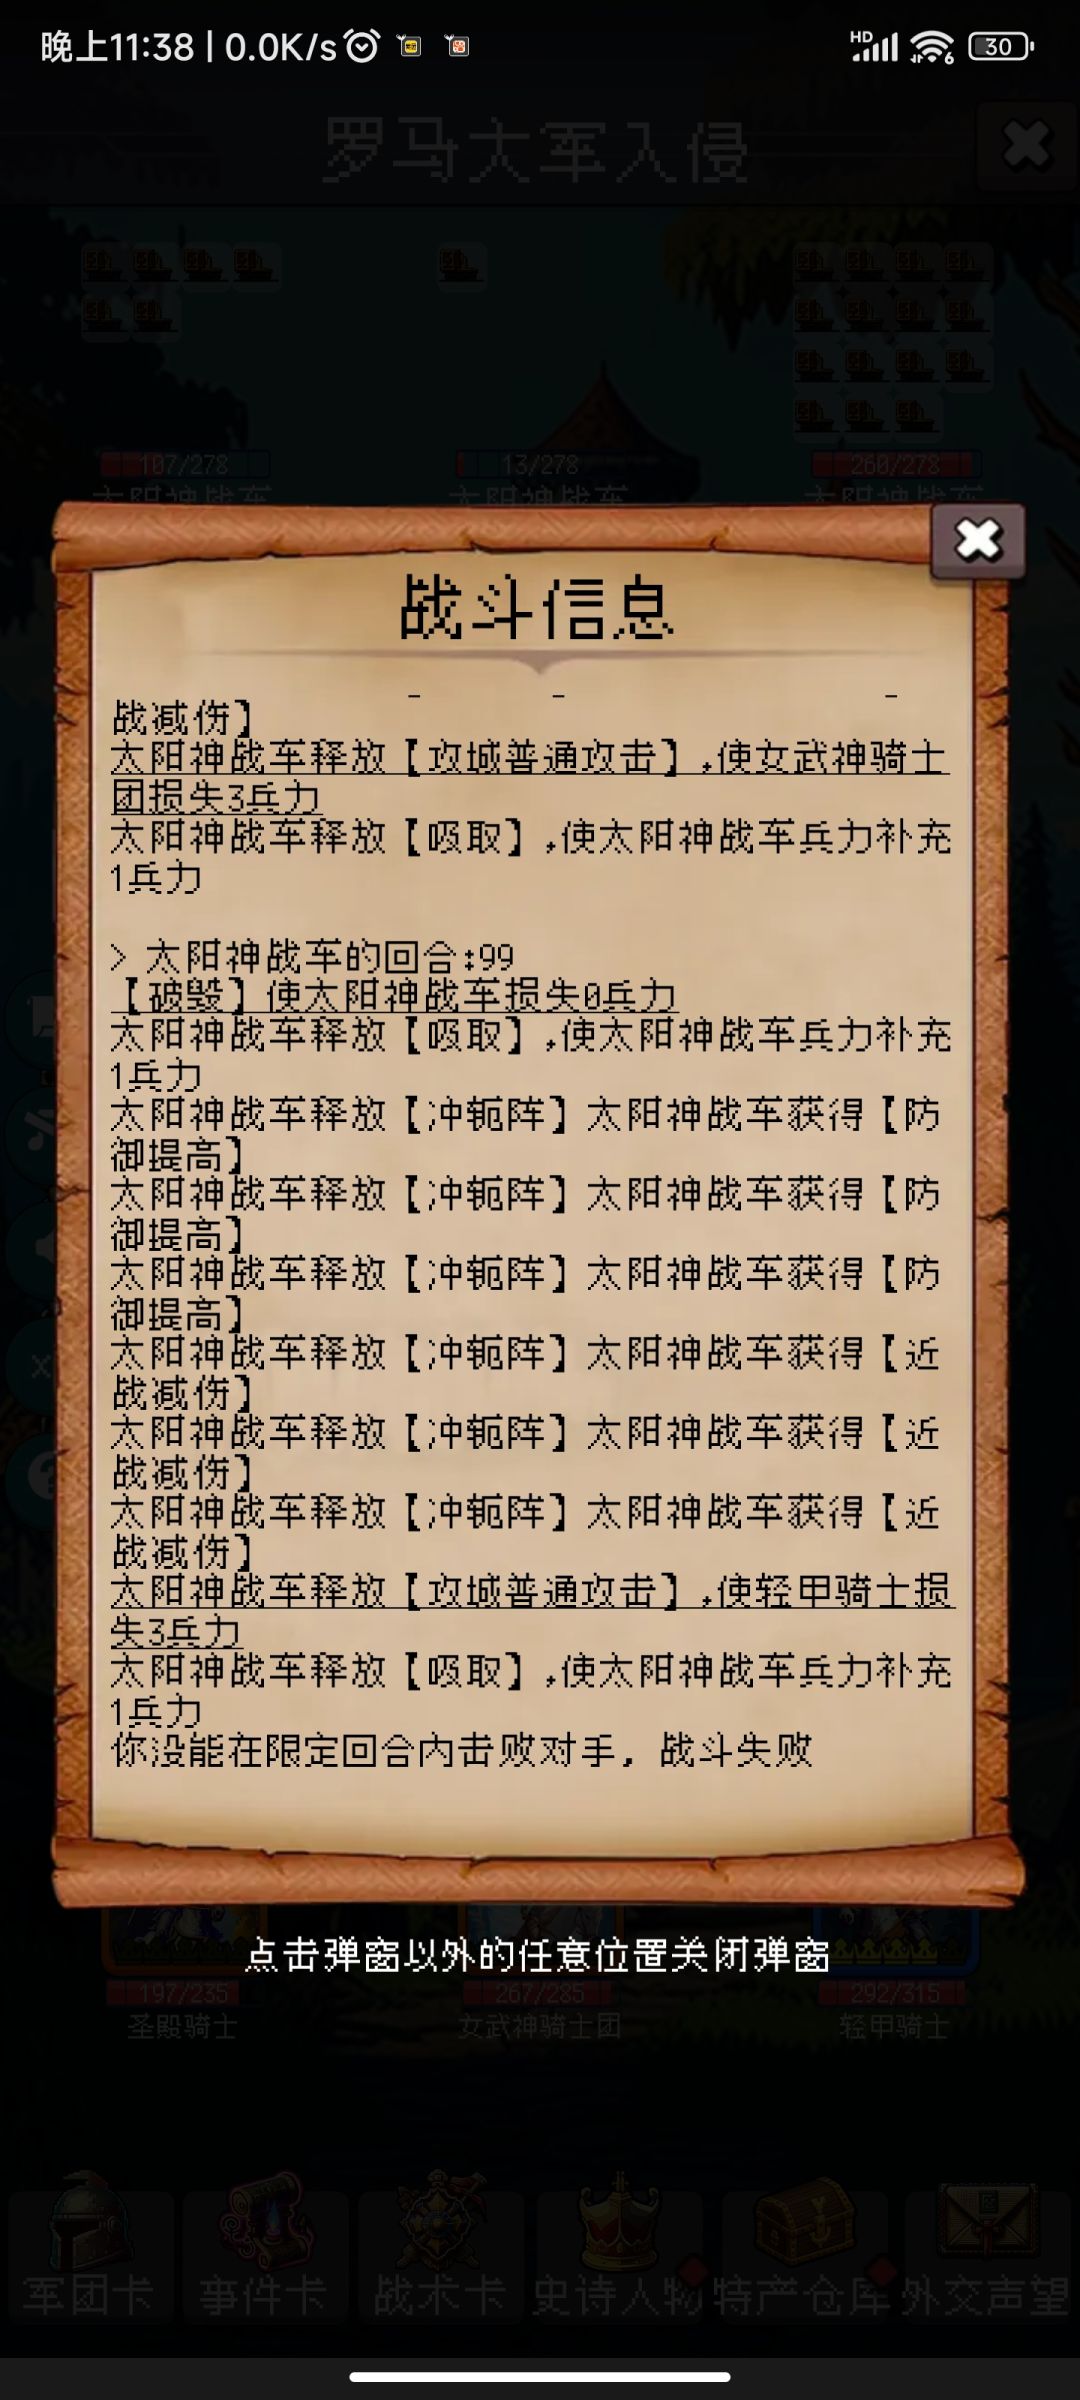 晚上11:38 | 0.0K/s
HD
6
30
罗马大军入侵
107/278
13/278
260/278
太阳神战车
太阳神战车
太阳神战车
战斗信息
战减伤】
太阳神战车释放【攻城普通攻击】,使女武神骑士
团损失3兵力
太阳神战车释放【吸取】,使太阳神战车兵力补充
1兵力
> 太阳神战车的回合:99
【破毁】使太阳神战车损失0兵力
太阳神战车释放【吸取】,使太阳神战车兵力补充
1兵力
太阳神战车释放【冲轭阵】太阳神战车获得【防
御提高】
太阳神战车释放【冲轭阵】太阳神战车获得【防
御提高】
太阳神战车释放【冲轭阵】太阳神战车获得【防
御提高】
太阳神战车释放【冲轭阵】太阳神战车获得【近
战减伤】
太阳神战车释放【冲轭阵】太阳神战车获得【近
战减伤】
太阳神战车释放【冲轭阵】太阳神战车获得【近
战减伤】
太阳神战车释放【攻城普通攻击】,使轻甲骑士损
失3兵力
太阳神战车释放【吸取】,使太阳神战车兵力补充
1兵力
你没能在限定回合内击败对手，战斗失败
点击弹窗以外的任意位置关闭弹窗
197/235
267/285
292/315
圣殿骑士
女武神骑士团
轻甲骑士
军团卡
事件卡
战术卡
史诗人物
特产仓库
外交声望